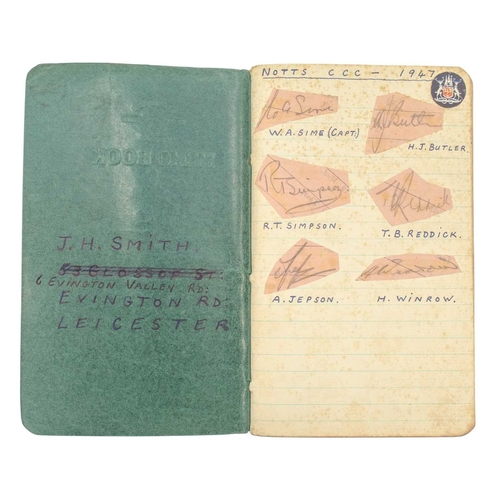 J.H. SMITH.
53 GLOSSOP ST:
6 EVINGTON VALLEY RD:
EVINGTON RD:
LEICESTER
NOTTS CCC - 1947
W.A. SIME (CAPT.)
H.J. BUTLER
R.T. Simpson.
R.T. SIMPSON.
T.B. REDDICK.
A. JEPSON.
H. WINROW.